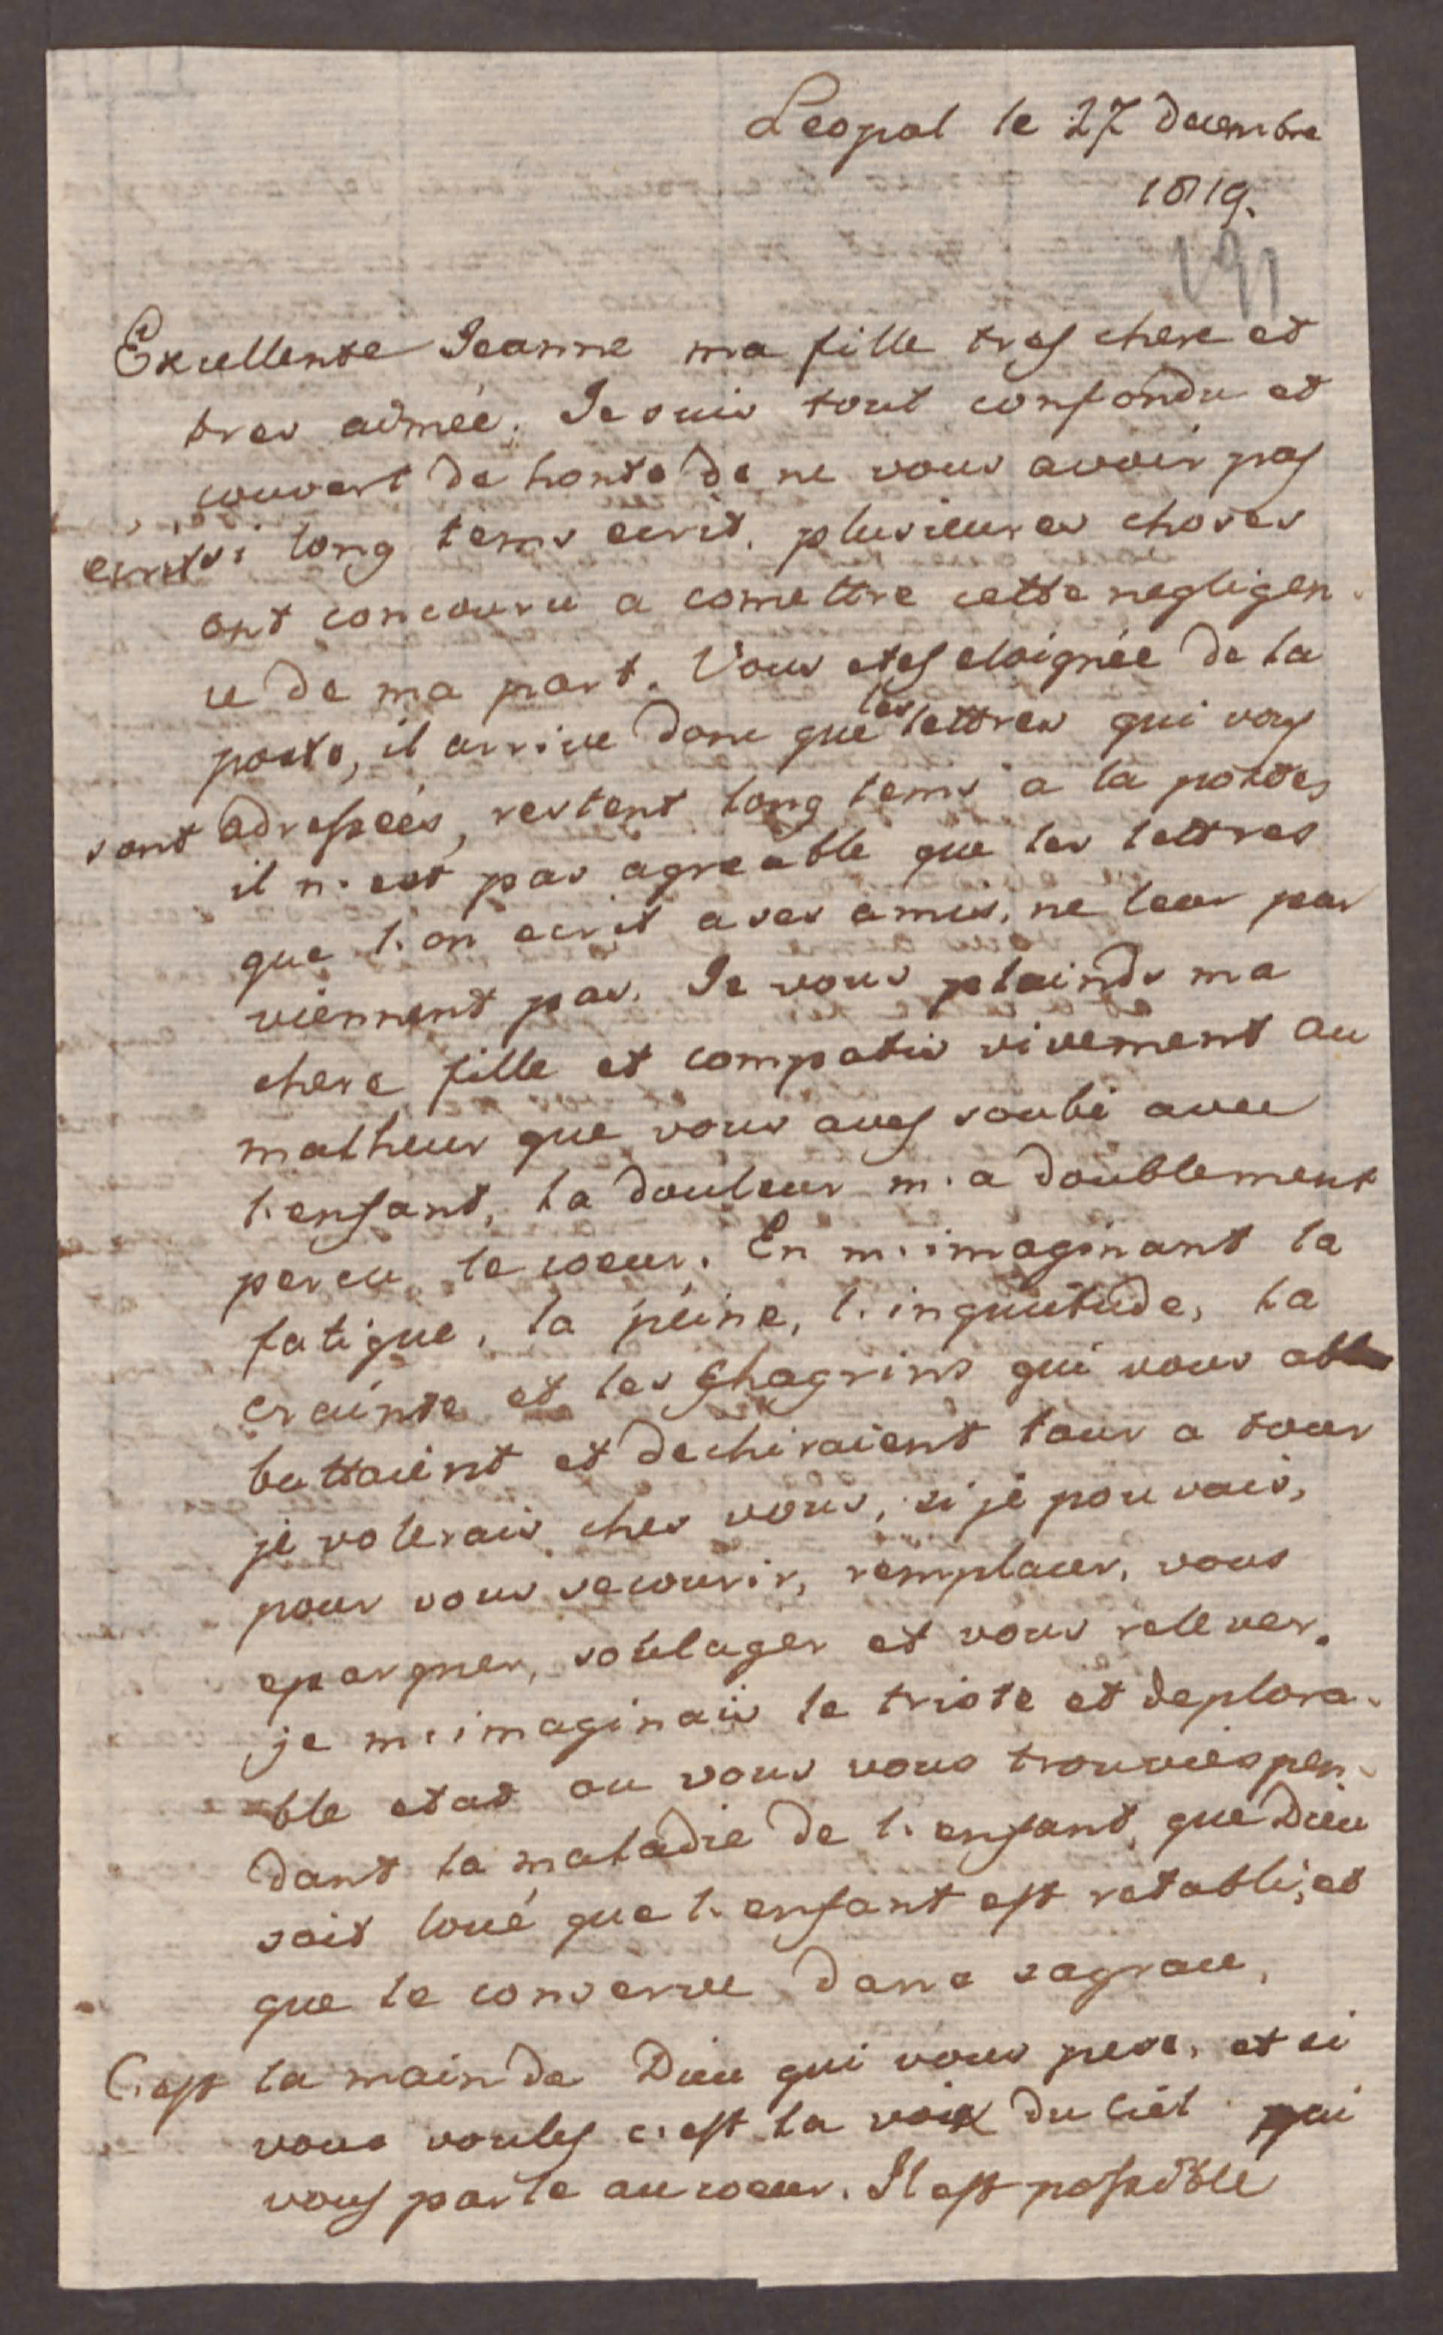 Leopol le 27 decembre
1819.
191
Excellente Jeanne ma fille tres chere et
tres aimée. Je suis tout confondu et
couvert de honte de ne vous avoir pas
si long tems ecrit. plusieures choses
ont concouru a comettre cette negligen-
ce de ma part. Vous etes eloignée de la
poste, il arrive donc que les lettres qui vous
sont adressées, restent long tems a la postes
il n'est pas agreable que les lettres
que l'on ecrit a ses amis, ne leur par
viennent pas. Je vous plainds ma
chere fille et compatis vivement au
malheur que vous aves soubi avec
l'enfant, la douleur m'a doublement
percu le coeur. En m'imaginant la
fatigue, la peine, l'inquietude, la
crainte et les Chagrins qui vous ab
battaient et dechiraient tour a tour
je volerais ches vous, si je pouvais,
pour vous secourir, remplacer, vous
epargner, soulager et vous relever.
je m'imaginais le triste et deplora-
ble etat ou vous vous trouvies pen-
dant la maladie de l'enfant, que Dieu
soit loué que l'enfant est retabli, et
que le conserve dans sa grace,
C'est la main de Dieu qui vous pese, et si
vous voules c'est la voix du ciel qui
vous parle au coeur. Il est possible